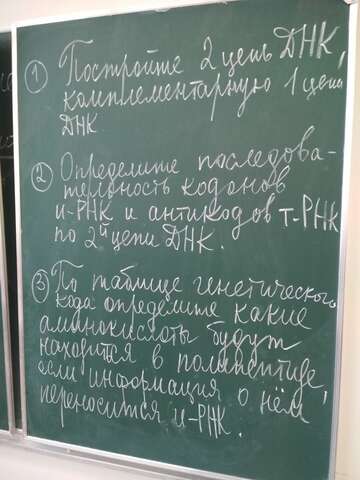 ① Постройте 2 цепь ДНК,
комплементарную 1 цепи
ДНК.
② Определите последова-
тельность кодонов
и-РНК и антикодов т-РНК
по 2й цепи ДНК.
③ По таблице генетического
кода определите какие
аминокислоты будут
находится в полипептиде,
если информация о нём
переносится и-РНК.